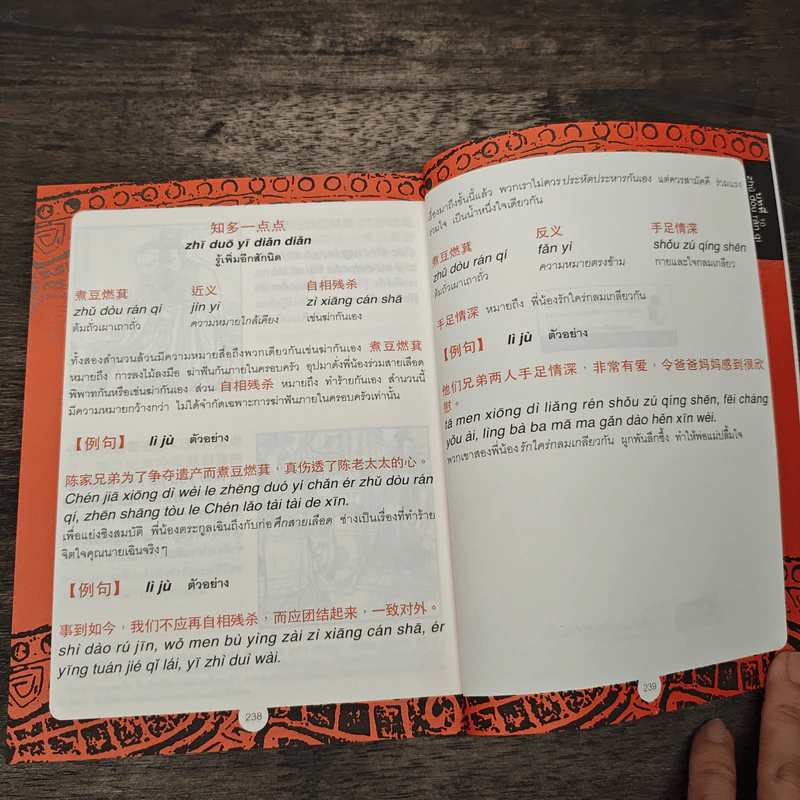 知多一点点
zhī duō yī diǎn diǎn
รู้เพิ่มอีกสักนิด
煮豆燃萁 近义 自相残杀
zhǔ dòu rán qí jìn yì zì xiāng cán shā
ต้มถั่วเผาเถาถั่ว ความหมายใกล้เคียง เข่นฆ่ากันเอง
ทั้งสองสำนวนล้วนมีความหมายสื่อถึงพวกเดียวกันเข่นฆ่ากันเอง 煮豆燃萁
หมายถึง การลงไม้ลงมือ ฆ่าฟันกันภายในครอบครัว อุปมาดั่งพี่น้องร่วมสายเลือด
พิพาทกันหรือเข่นฆ่ากันเอง ส่วน 自相残杀 หมายถึง ทำร้ายกันเอง สำนวนนี้
มีความหมายกว้างกว่า ไม่ได้จำกัดเฉพาะการฆ่าฟันภายในครอบครัวเท่านั้น
【例句】 lì jù ตัวอย่าง
陈家兄弟为了争夺遗产而煮豆燃萁，真伤透了陈老太太的心。
Chén jiā xiōng dì wèi le zhēng duó yí chǎn ér zhǔ dòu rán
qí, zhēn shāng tòu le Chén lǎo tài tài de xīn.
เพื่อแย่งชิงสมบัติ พี่น้องตระกูลเฉินถึงกับก่อศึกสายเลือด ช่างเป็นเรื่องที่ทำร้าย
จิตใจคุณนายเฉินจริงๆ
【例句】 lì jù ตัวอย่าง
事到如今，我们不应再自相残杀，而应团结起来，一致对外。
shì dào rú jīn, wǒ men bù yìng zài zì xiāng cán shā, ér
yīng tuán jié qǐ lái, yī zhì duì wài.
238
เรื่องมาถึงขั้นนี้แล้ว พวกเราไม่ควรประหัตประหารกันเอง แต่ควรสามัคคี ร่วมแรง
ร่วมใจ เป็นน้ำหนึ่งใจเดียวกัน
煮豆燃萁 反义 手足情深
zhǔ dòu rán qí fǎn yì shǒu zú qíng shēn
ต้มถั่วเผาเถาถั่ว ความหมายตรงข้าม กายและใจกลมเกลียว
手足情深 หมายถึง พี่น้องรักใคร่กลมเกลียวกัน
【例句】 lì jù ตัวอย่าง
他们兄弟两人手足情深，非常有爱，令爸爸妈妈感到很欣
慰。
tā men xiōng dì liǎng rén shǒu zú qíng shēn, fēi cháng
yǒu ài, lìng bà ba mā ma gǎn dào hěn xīn wèi.
พวกเขาสองพี่น้องรักใคร่กลมเกลียวกัน ผูกพันลึกซึ้ง ทำให้พ่อแม่ปลื้มใจ
239
zhǔ dòu rán qí